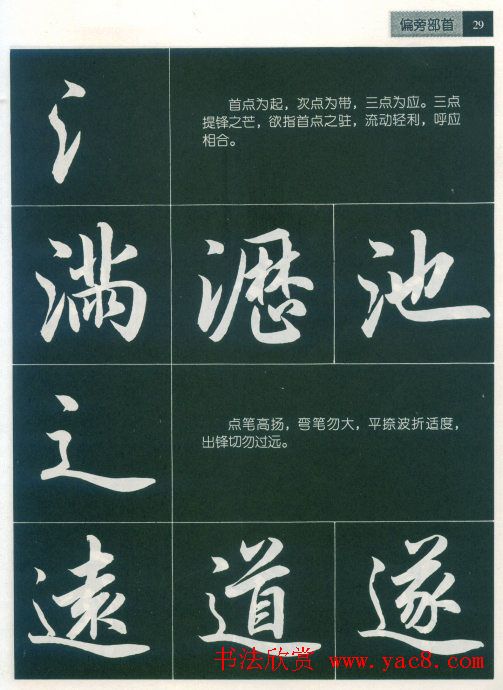 偏旁部首 29
氵
首点为起，次点为带，三点为应。三点
提锋之芒，欲指首点之驻，流动轻利，呼应
相合。
满 瀝 池
辶
点笔高扬，弯笔勿大，平捺波折适度，
出锋切勿过远。
遠 道 遂
书法欣赏 www.yac8.com